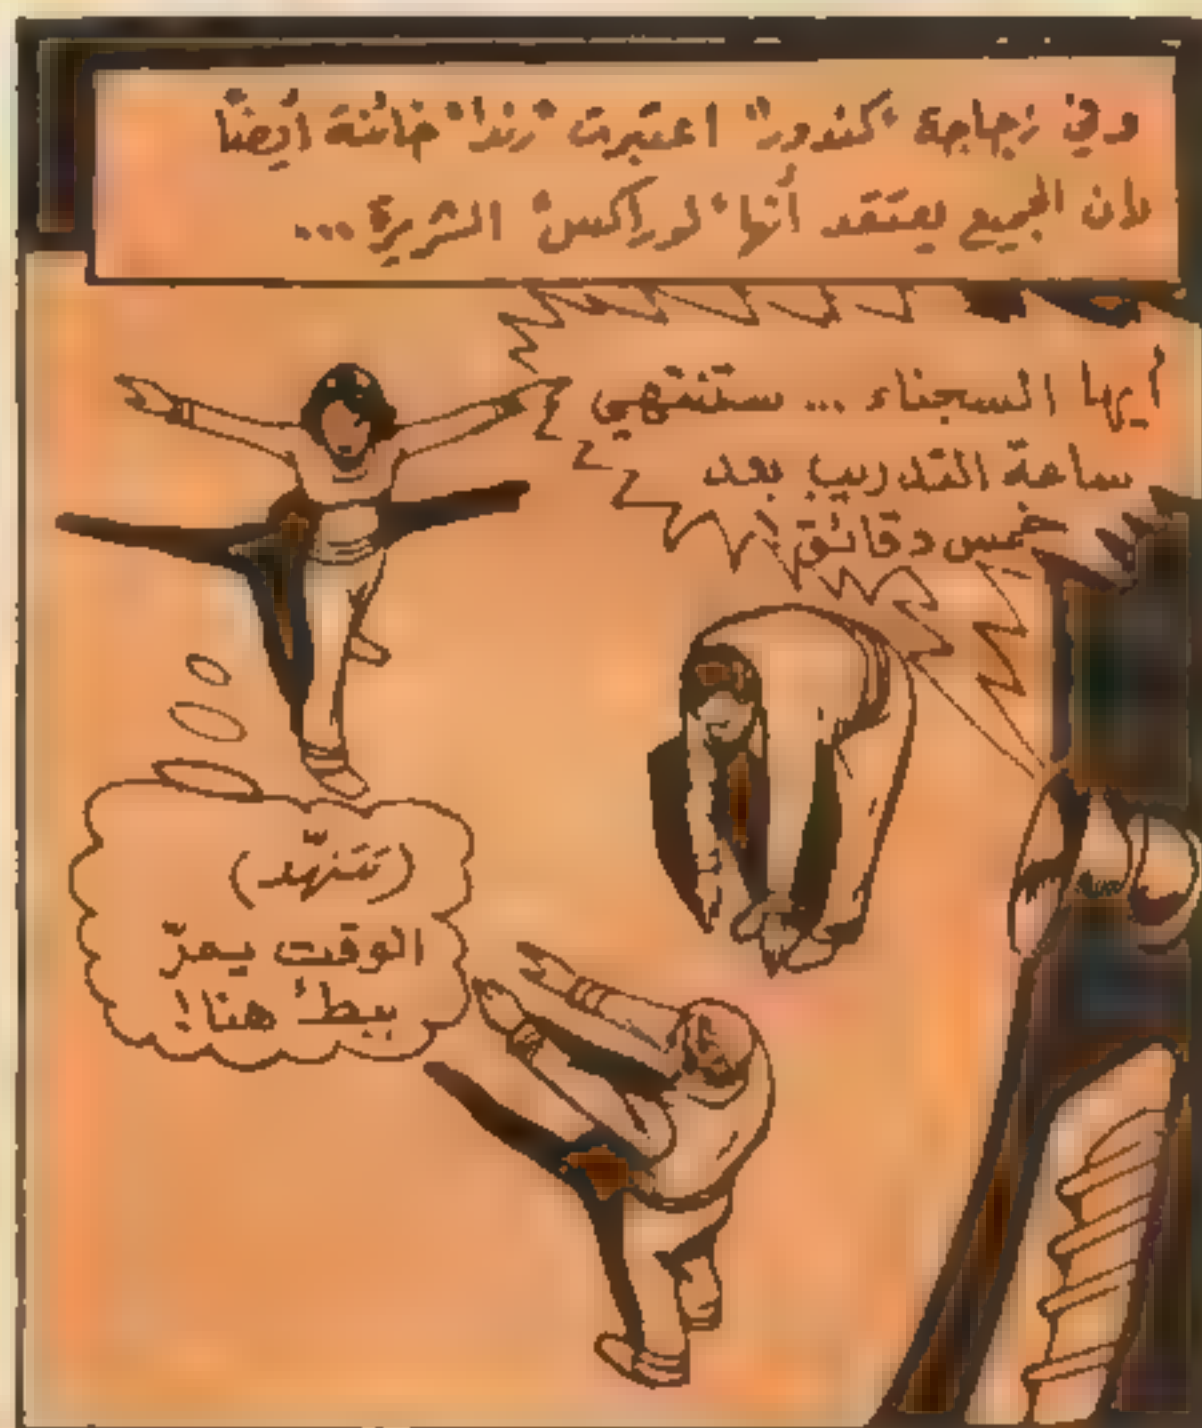 وفي زجاجة "كندور" اعتبرت "رندا" خائنة أيضاً
لأن الجميع يعتقد أنها "لوراكس" الشريرة...
أيها السجناء ... ستنتهي
ساعة التدريب بعد
خمس دقائق !
(تنهّد)
الوقت يمرّ
ببطء هنا !